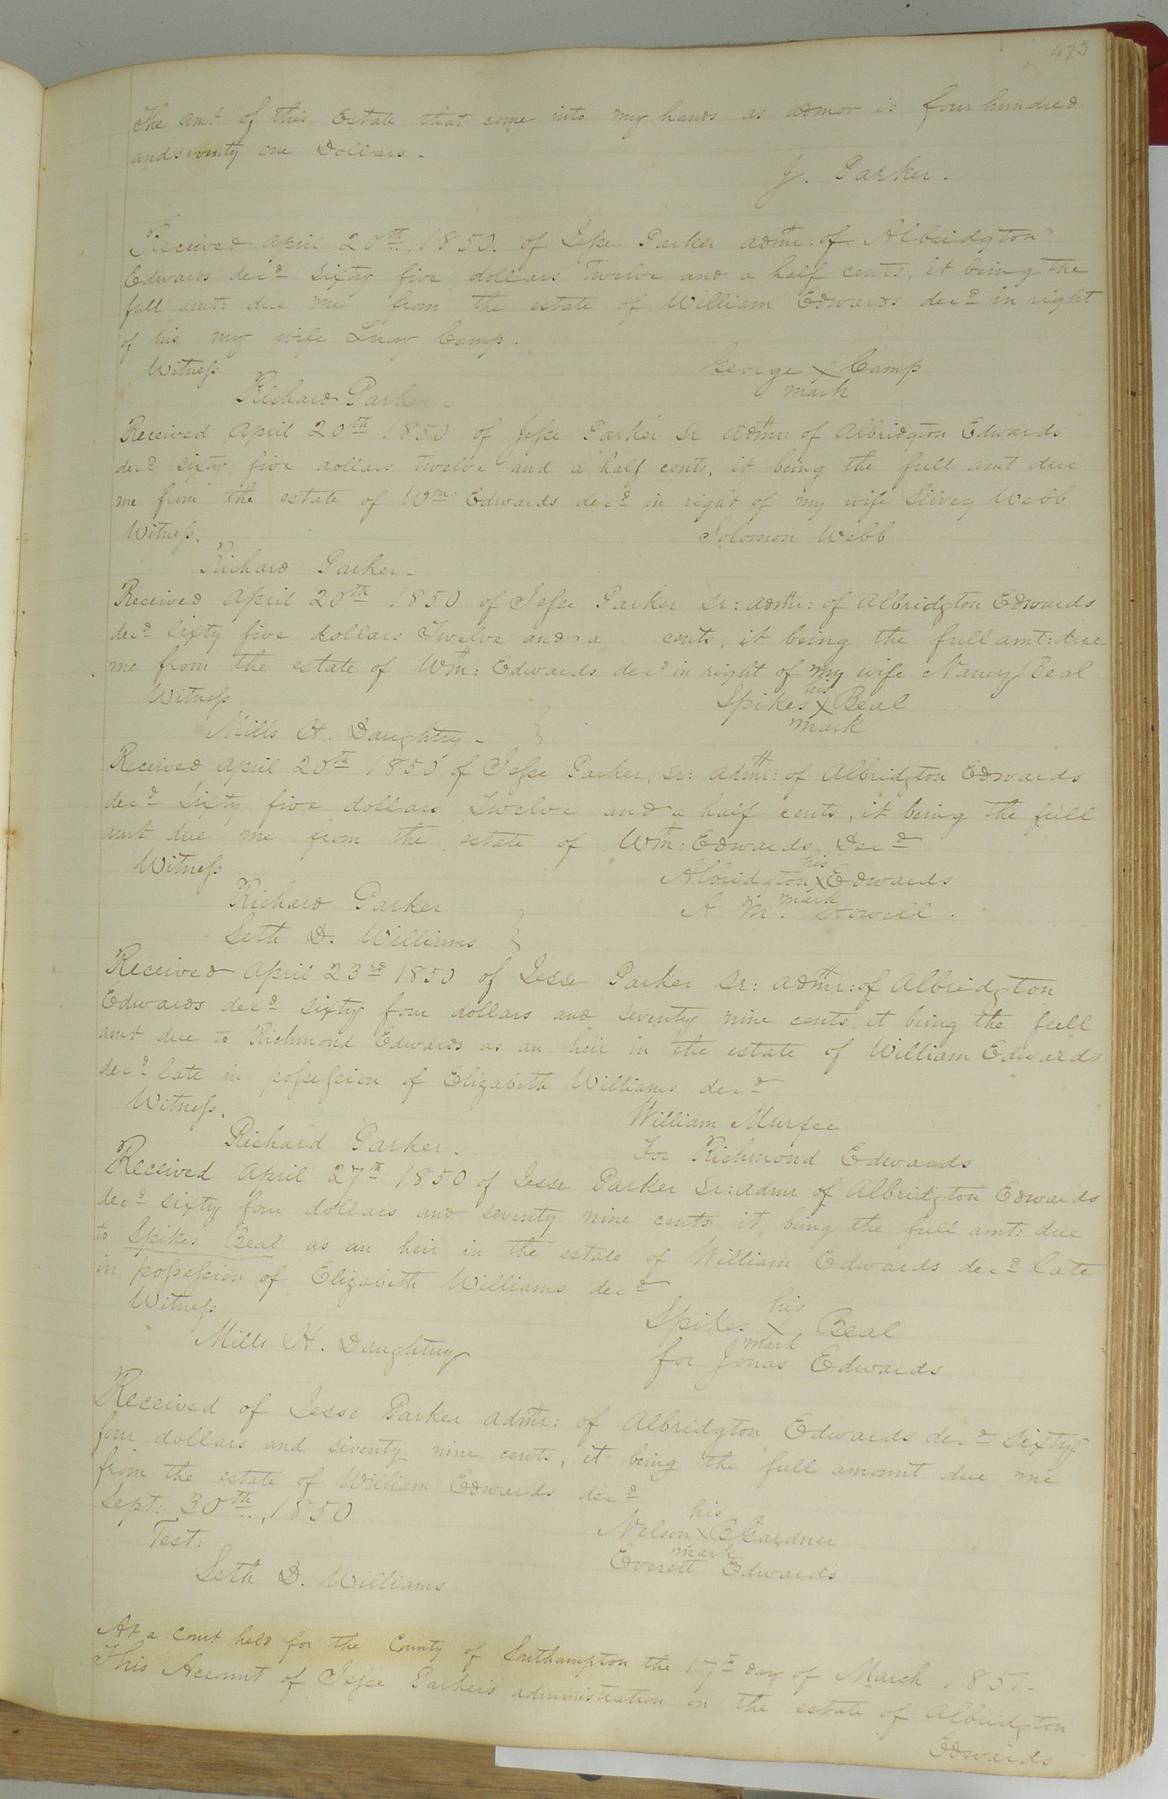 473
The amt of this Estate that come into my hands as admor is four hundred
and seventy one Dollars.
J. Parker.
Received April 20th 1850. of Jesse Parker admr: of Albridgton
Edwards decd sixty five dollars Twelve and a half cents, it being the
full amt: due me from the estate of William Edwards decd in right
of his my wife Lucy Camp.
Witness
George X Camp
mark
Richard Parker
Received April 20th 1850 of Jesse Parker Sr admr: of Albridgton Edwards
decd sixty five dollars twelve and a half cents, it being the full amt due
me from the estate of Wm: Edwards decd in right of my wife Silvey Webb
Witness.
Solomon Webb
Richard Parker
Received April 20th 1850 of Jesse Parker Sr: admr: of Albridgton Edwards
decd Sixty five dollars Twelve and a cents, it being the full amt: due
me from the estate of Wm: Edwards decd in right of my wife Nancy Beal
Witness
his
Spikes X Beal
mark
Mills H. Daughtry
Received April 20th 1850 of Jesse Parker, Sr: admr: of Albridgton Edwards
decd Sixty five dollars Twelve and a half cents, it being the full
amt due me from the estate of Wm: Edwards, Decd
Witness
his
Albridgton X Edwards
mark
Richard Parker
A M.
Seth D. Williams
Received April 23rd 1850 of Jesse Parker Sr: admr: of Albridgton
Edwards decd sixty four dollars and seventy nine cents, it being the full
amt due to Richmond Edwards as an heir in the estate of William Edwards
decd late in possession of Elizabeth Williams decd
Witness.
William Murfee
Richard Parker.
For Richmond Edwards
Received April 27th 1850 of Jesse Parker Sr: admr of Albridgton Edwards
decd sixty four dollars and seventy nine cents it being the full amt: due
to Spikes Beal as an heir in the estate of William Edwards decd late
in possession of Elizabeth Williams decd
Witness
his
Spikes X Beal
mark
Mills H. Daughtry
for Jonas Edwards
Received of Jesse Parker admr: of Albridgton Edwards decd sixty
four dollars and seventy nine cents, it being the full amount due me
from the estate of William Edwards decd
Sept: 30th, 1850
his
Nelson X Gardner
mark
Test:
Everett Edwards
Seth D. Williams
At a Court held for the County of Southampton the 17th day of March 1851.
This Account of Jesse Parker's administration on the estate of Albridgton
Edwards